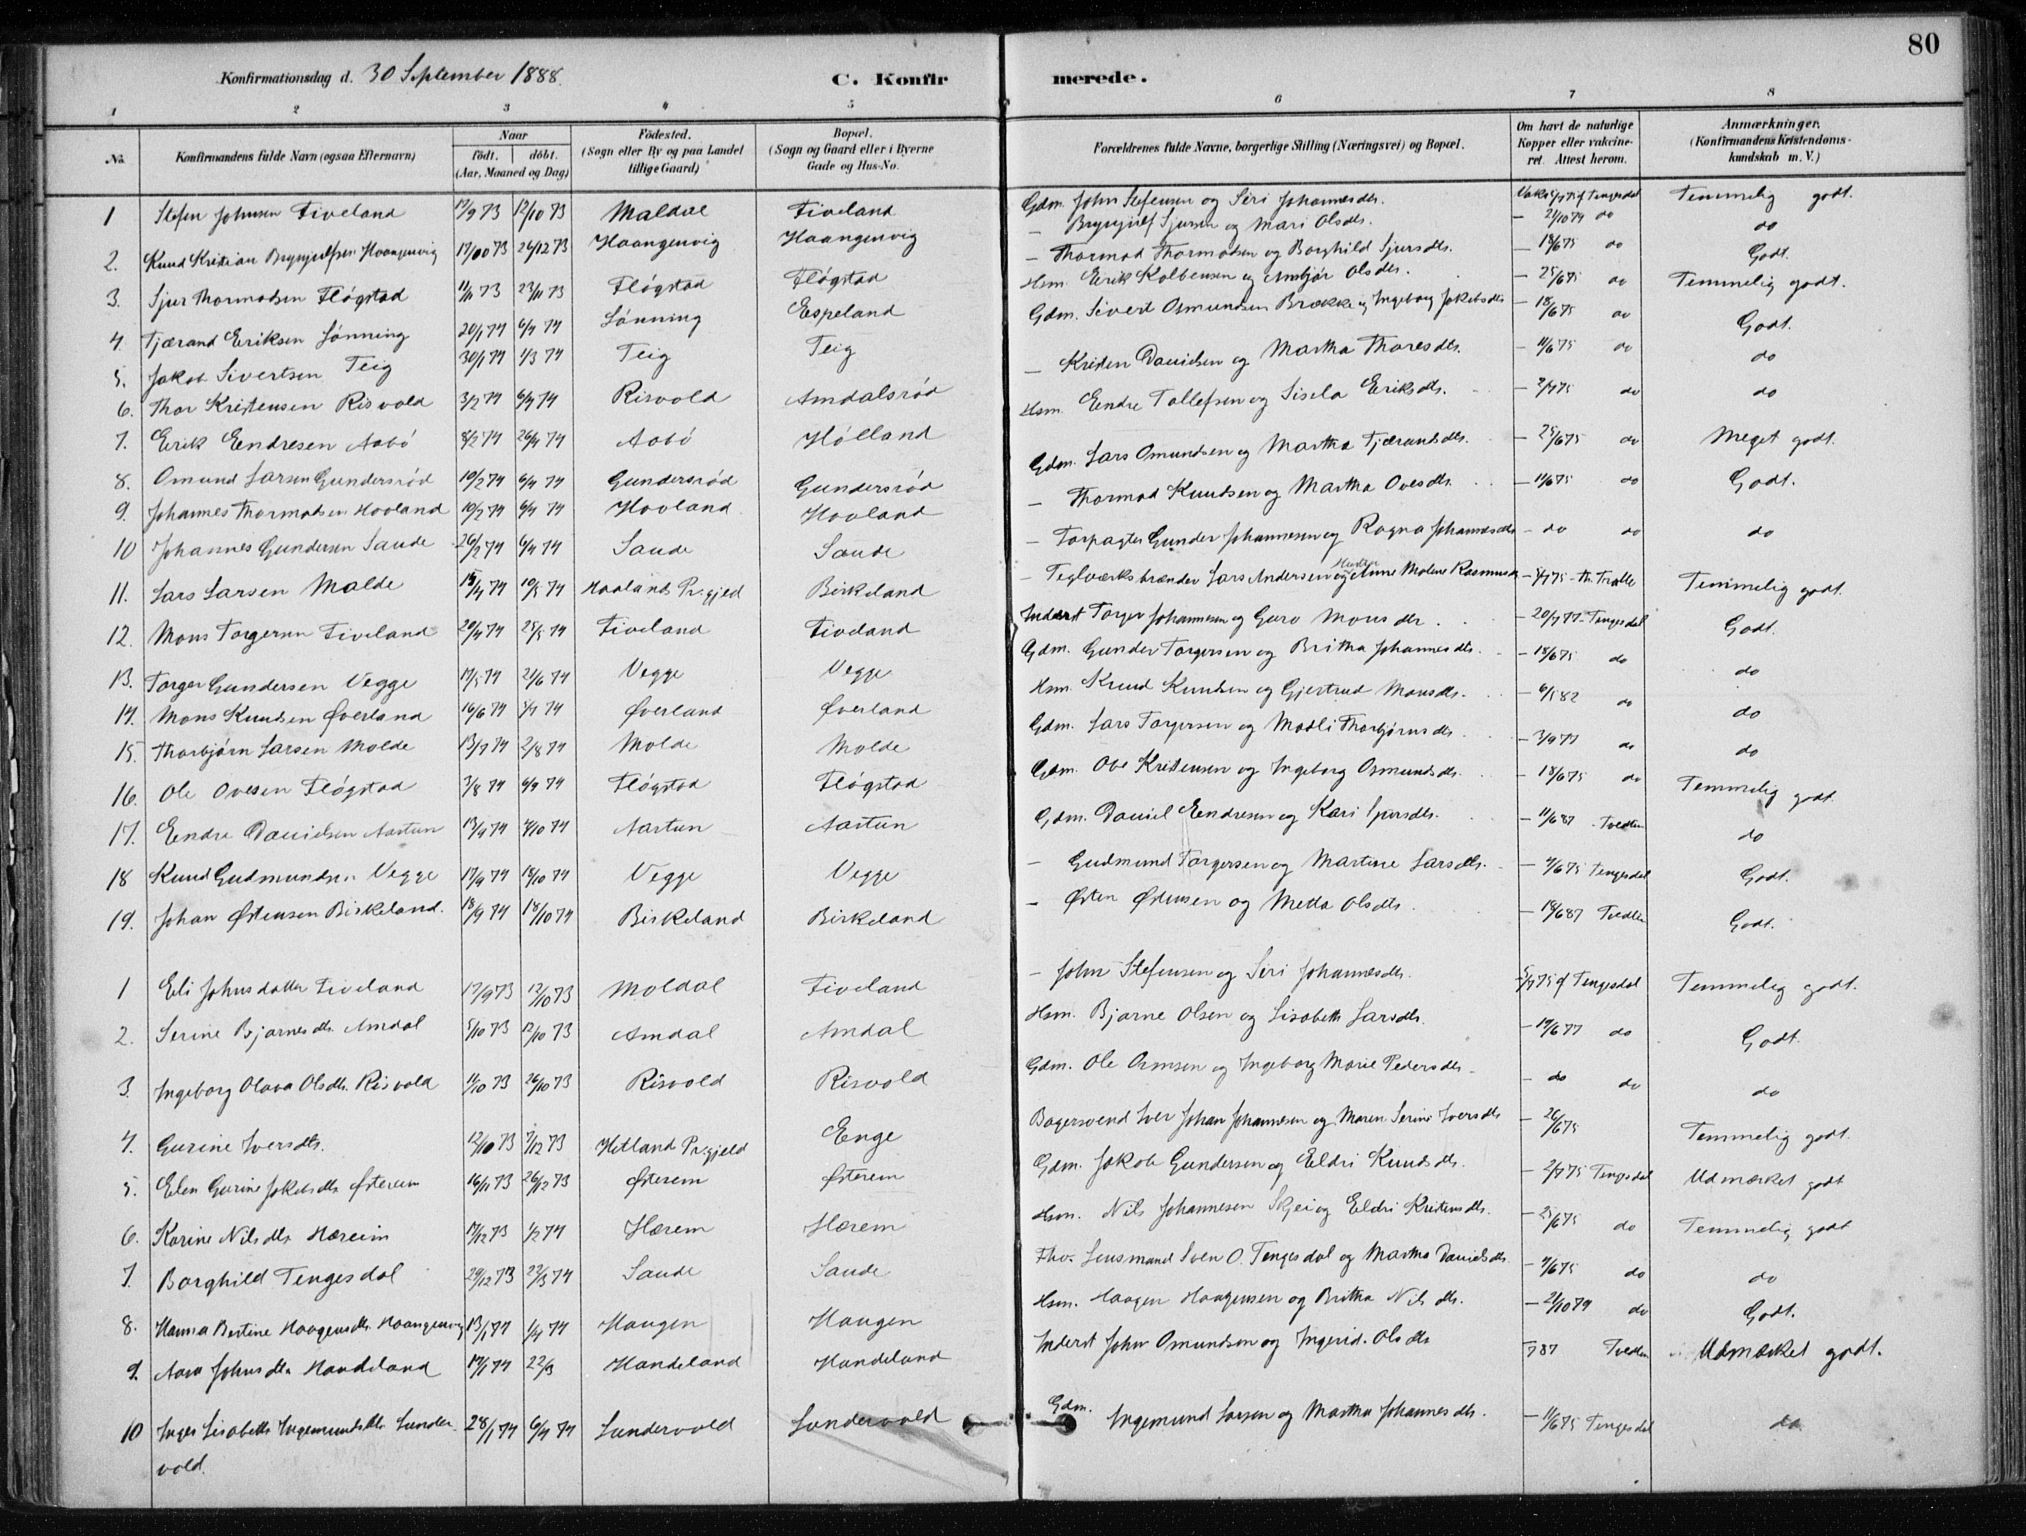 80
Konfirmationsdag d. 30 September 1888. C. Konfirmerede.
1 2 3 4 5 6 7 8
No. Konfirmandens fulde Navn (ogsaa Efternavn) Naar födt. döbt. (Aar, Maaned og Dag) Födested. (Sogn eller By og paa Landet tillige Gaard) Bopæl. (Sogn og Gaard eller i Byerne Gade og Hus-No. Forældrenes fulde Navne, borgerlige Stilling (Næringsvei) og Bopæl. Om havt de naturlige Kopper eller vakcineret. Attest herom. Anmærkninger. (Konfirmandens Kristendomskundskab m. V.)
1 Stefen Johnsen Tiveland 17/9 73 12/10 73 Maldal Tiveland Gdm. John Stefensen og Siri Johannesdtr. Tengesdal Temmelig godt.
2. Knud Kristian Brynjulfsen Haangenvig 26/12 73 Haangenvig Haangenvig — Brynjulf Sjursen og Mari Olsdtr. — 21/10 74 do do
3. Sjur Thormodsen Fløgstad 11/11 73 23/11 73 Fløgstad Fløgstad — Thormod Thormodsen og Borghild Sjursdtr. — 18/6 75 do Godt.
4. Tjærand Eriksen Lønning 20/1 74 6/4 74 Lønning Espeland Hsm. Erik Kolbensen og Ansbjør Olsdtr. — 25/6 75 do Temmelig godt.
5. Jakob Sivertsen Teig 30/1 74 1/3 74 Teig Teig Gdm. Sivert Osmundsen Brække og Ingeborg Jakobsdtr — 18/6 75 do Godt.
6. Thor Kristensen Risvold 3/2 74 6/4 74 Risvold Amdalsrød — Kristen Danielsen og Martha Thoresdtr. — 11/6 75 do do
7. Erik Endresen Aabø 8/2 74 26/4 74 Aabø Hølland Hsm. Endre Tollefsen og Sisela Eriksdtr. — 2/7 75 do do
8. Omund Larsen Gundersrød 19/2 74 6/4 74 Gundersrød Gundersrød Gdm. Lars Omundsen og Martha Tjærandsdtr. — 25/6 75 do Meget godt.
9. Johannes Thormodsen Hovland 19/2 74 6/4 74 Hovland Hovland — Thormod Knudsen og Martha Ovesdtr. — 11/6 75 do Godt.
10 Johannes Gundersen Saude 26/2 74 6/4 74 Saude Saude — Forpagter Gunder Johannesen og Ragna Johannesdtr — do do do
11. Lars Larsen Malde 10/5 74 Haaland Pr.gjeld Birkeland — Teglværksbrænder Lars Andersen og Hustru Anne Malene Rasmusdtr — 5/7 75 Temmelig godt.
12. Mons Torgersen Tiveland 20/4 74 25/5 74 Tiveland Tiveland Inderst Torger Johannesen og Guro Monsdtr. — 20/7 77 Tengesdal Godt.
13. Torger Gundersen Vegge 17/5 74 21/6 74 Vegge Vegge Gdm. Gunder Torgersen og Britha Johannesdtr. — 18/6 75 do do
14. Mons Knudsen Øverland 16/6 74 Øverland Øverland Hsm. Knud Knudsen og Gjertrud Monsdtr. — 6/5 82 do do
15. Thorbjørn Larsen Molde 13/7 74 2/8 74 Molde Molde Gdm. Lars Torgersen og Madli Thorbjørnsdtr. — 3/9 77 do do
16. Ole Ovesen Fløgstad 3/8 74 6/9 74 Fløgstad Fløgstad Gdm. Ove Kristensen og Ingeborg Osmundsdtr. — 18/6 75 do Temmelig godt.
17. Endre Danielsen Aartun 13/9 74 4/10 74 Aartun Aartun Gdm. Daniel Endresen og Kari Sjursdtr. — 11/6 87 Tvedten do
18 Knud Gudmundsen Vegge 17/9 74 18/10 74 Vegge Vegge — Gudmund Torgersen og Martine Larsdtr. — 4/6 75 Tengesdal Godt.
19. Johan Østensen Birkeland. 18/9 74 18/10 74 Birkeland Birkeland — Østen Østensen og Metta Olsdtr. — 18/6 87 Tvedten Godt.
1 Eli Johnsdatter Tiveland 17/9 73 12/10 73 Moldal Tiveland — John Stefensen og Siri Johannesdtr. 5/7 75 af Tengesdal Temmelig godt.
2. Serine Bjarnesdtr. Amdal 5/10 73 12/10 73 Amdal Amdal Hsm. Bjarne Olsen og Lisabeth Larsdtr. — 19/6 77 do Godt.
3. Ingeborg Olava Olsdtr. Risvold 11/10 73 26/10 73 Risvold Risvold Gdm. Ole Osmsen og Ingeborg Marie Pedersdtr. — do do do
4. Gurine Iversdtr. 12/10 73 7/12 73 Hetland Pr.gjeld Enge Bagersvend Iver Johan Johannesen og Maren Serine Iversdtr — 26/6 75 Temmelig godt.
5. Elen Gurine Jakobsdtr Østerem 16/11 73 26/12 73 Østerem Østerem Gdm. Jakob Gundersen og Eldri Knudsdtr. — 2/7 75 Tengesdal Udmærket godt
6. Karine Nilsdtr. Hæreim 17/12 73 1/2 74 Hærem Hærem Hsm. Nils Johannesen Skjei og Eldri Kristensdtr. — 25/6 75 do Temmelig godt
7. Borghild Tengesdal 29/12 73 22/3 74 Saude Saude Fhv. Lensmand Sven O. Tengesdal og Martha Danielsdtr — 4/6 75 do do
8. Hanna Bertine Haagensdtr. Haangenvig 13/1 74 1/4 74 Haugen Haugen Hsm. Haagen Haagensen og Britha Nilsdtr. — 21/10 74 do Godt.
9. Aasa Johnsdtr Handeland 19/1 74 22/3 Handeland Handeland Inderst John Osmundsen og Ingerid Olsdtr 87 Tvedten Udmærket godt.
10 Inger Lisabeth Ingemundsdtr. Sandervold. 28/1 74 6/4 74 Sandervold Sandervold Gdm. Ingemund Larsen og Martha Johannesdtr. — 11/6 75 Tengesdal do